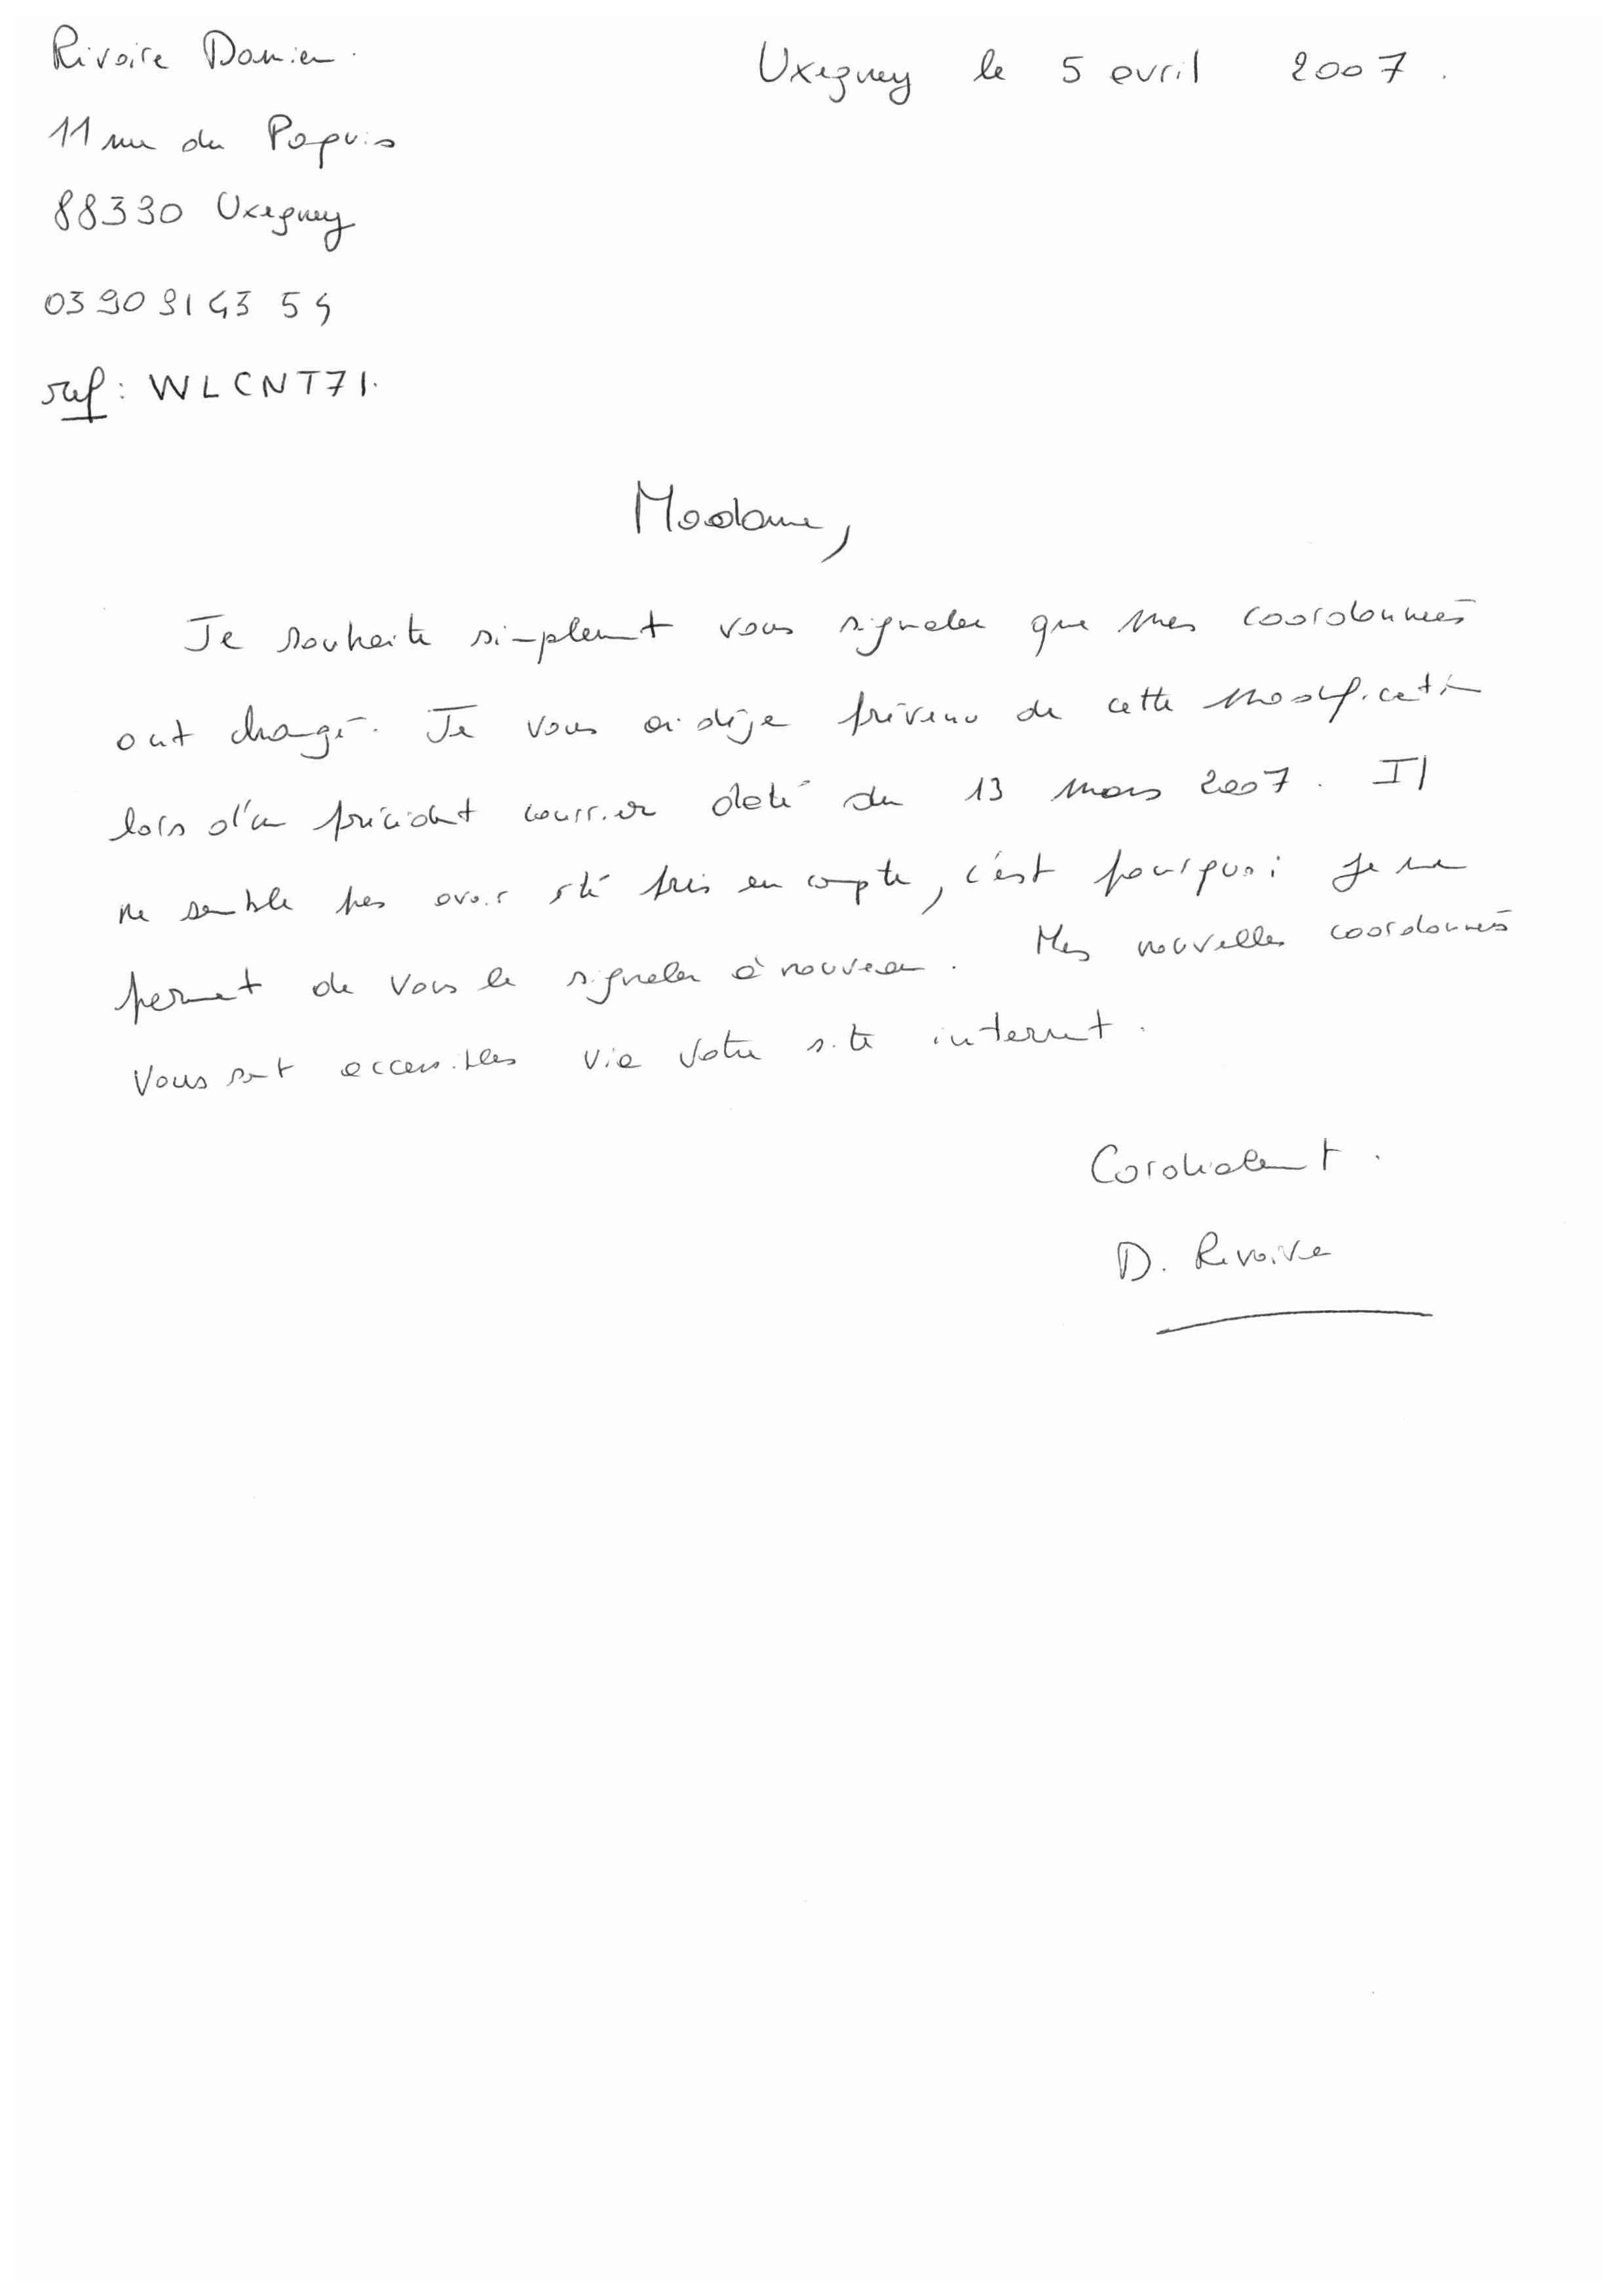 Rivoire Damien.
Uxegney le 5 avril 2007.
11 rue du Paquis
88390 Uxegney
03 90 91 43 54
ref : WLCNT71.
Madame,
Je souhaite simplement vous signaler que mes coordonnées
ont changé. Je vous ai déja prévenu de cette modification
lors d'un précédent courrier daté du 13 mars 2007. Il
ne semble pas avoir été pris en compte, c'est pourquoi je me
permet de vous le signaler à nouveau. Mes nouvelles coordonnées
vous sont accessibles via votre site internet.
Cordialement.
D. Rivoire